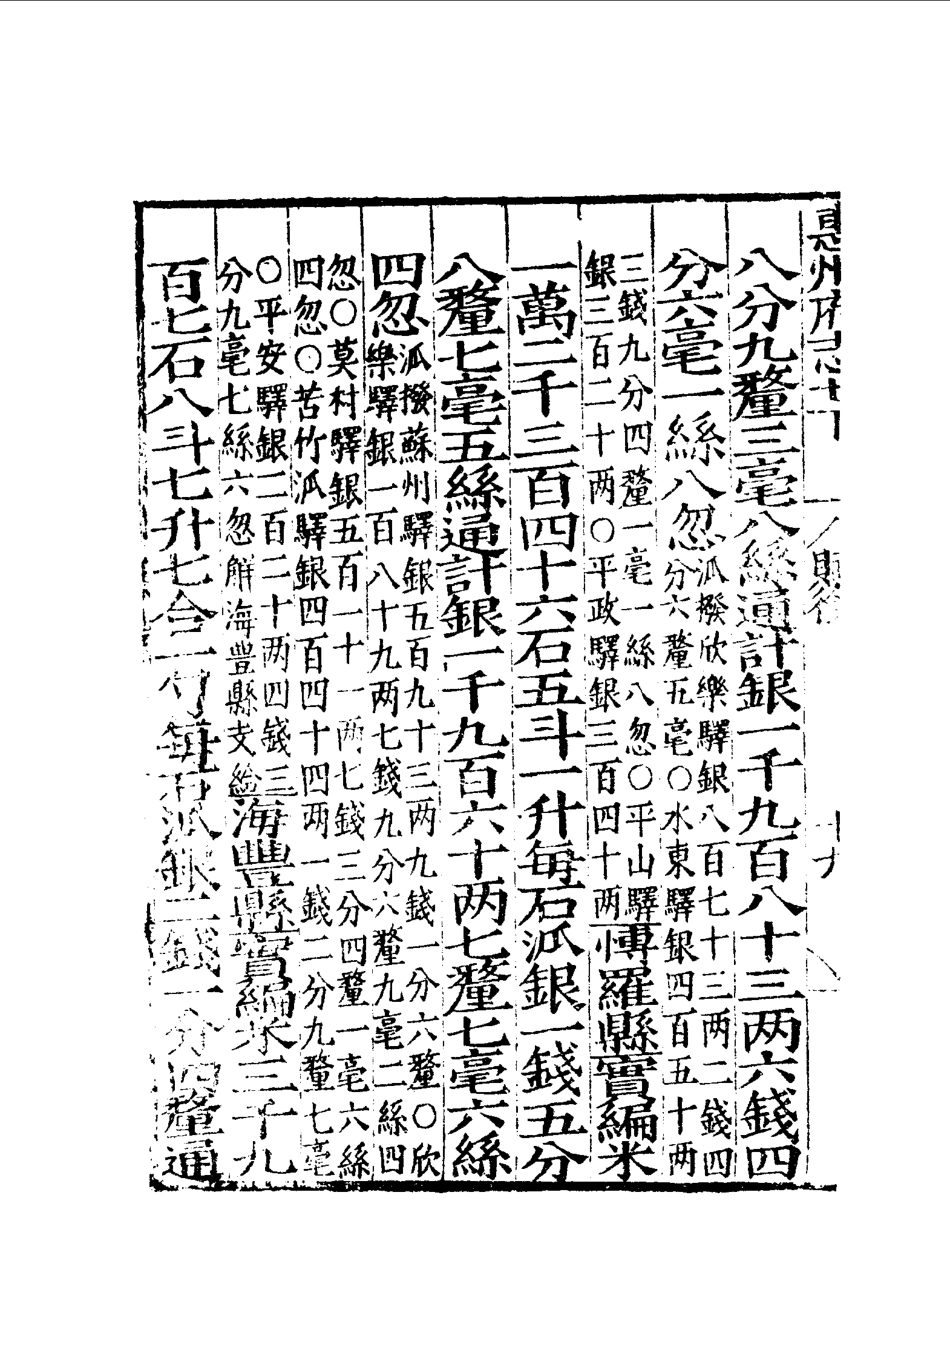 惠州府志
賦役
十九
八分九釐三毫八絲通計銀一千九百八十三两六錢四
分六毫一絲八忽
泒撥欣樂驛銀八百七十三两二錢四
分六釐五毫〇水東驛銀四百五十两
三錢九分四釐一毫一絲八忽〇平山驛
銀三百二十两〇平政驛銀三百四十两
博羅縣實編米
一萬二千三百四十六石五斗一升每石泒銀一錢五分
八釐七毫五絲通計銀一千九百六十两七釐七毫六絲
四忽
泒撥蘇州驛銀五百九十三两九錢一分六釐〇欣
樂驛銀一百八十九两七錢九分六釐九毫二絲四
忽〇莫村驛銀五百一十一两七錢三分四釐一毫六絲
四忽〇苦竹泒驛銀四百四十四两一錢二分九釐七毫
〇平安驛銀二百二十两四錢三
分九毫七絲六忽解海豐縣支給
海豐縣實編米三千九
百七石八斗七升七合一勺每石泒銀二錢一分四釐通